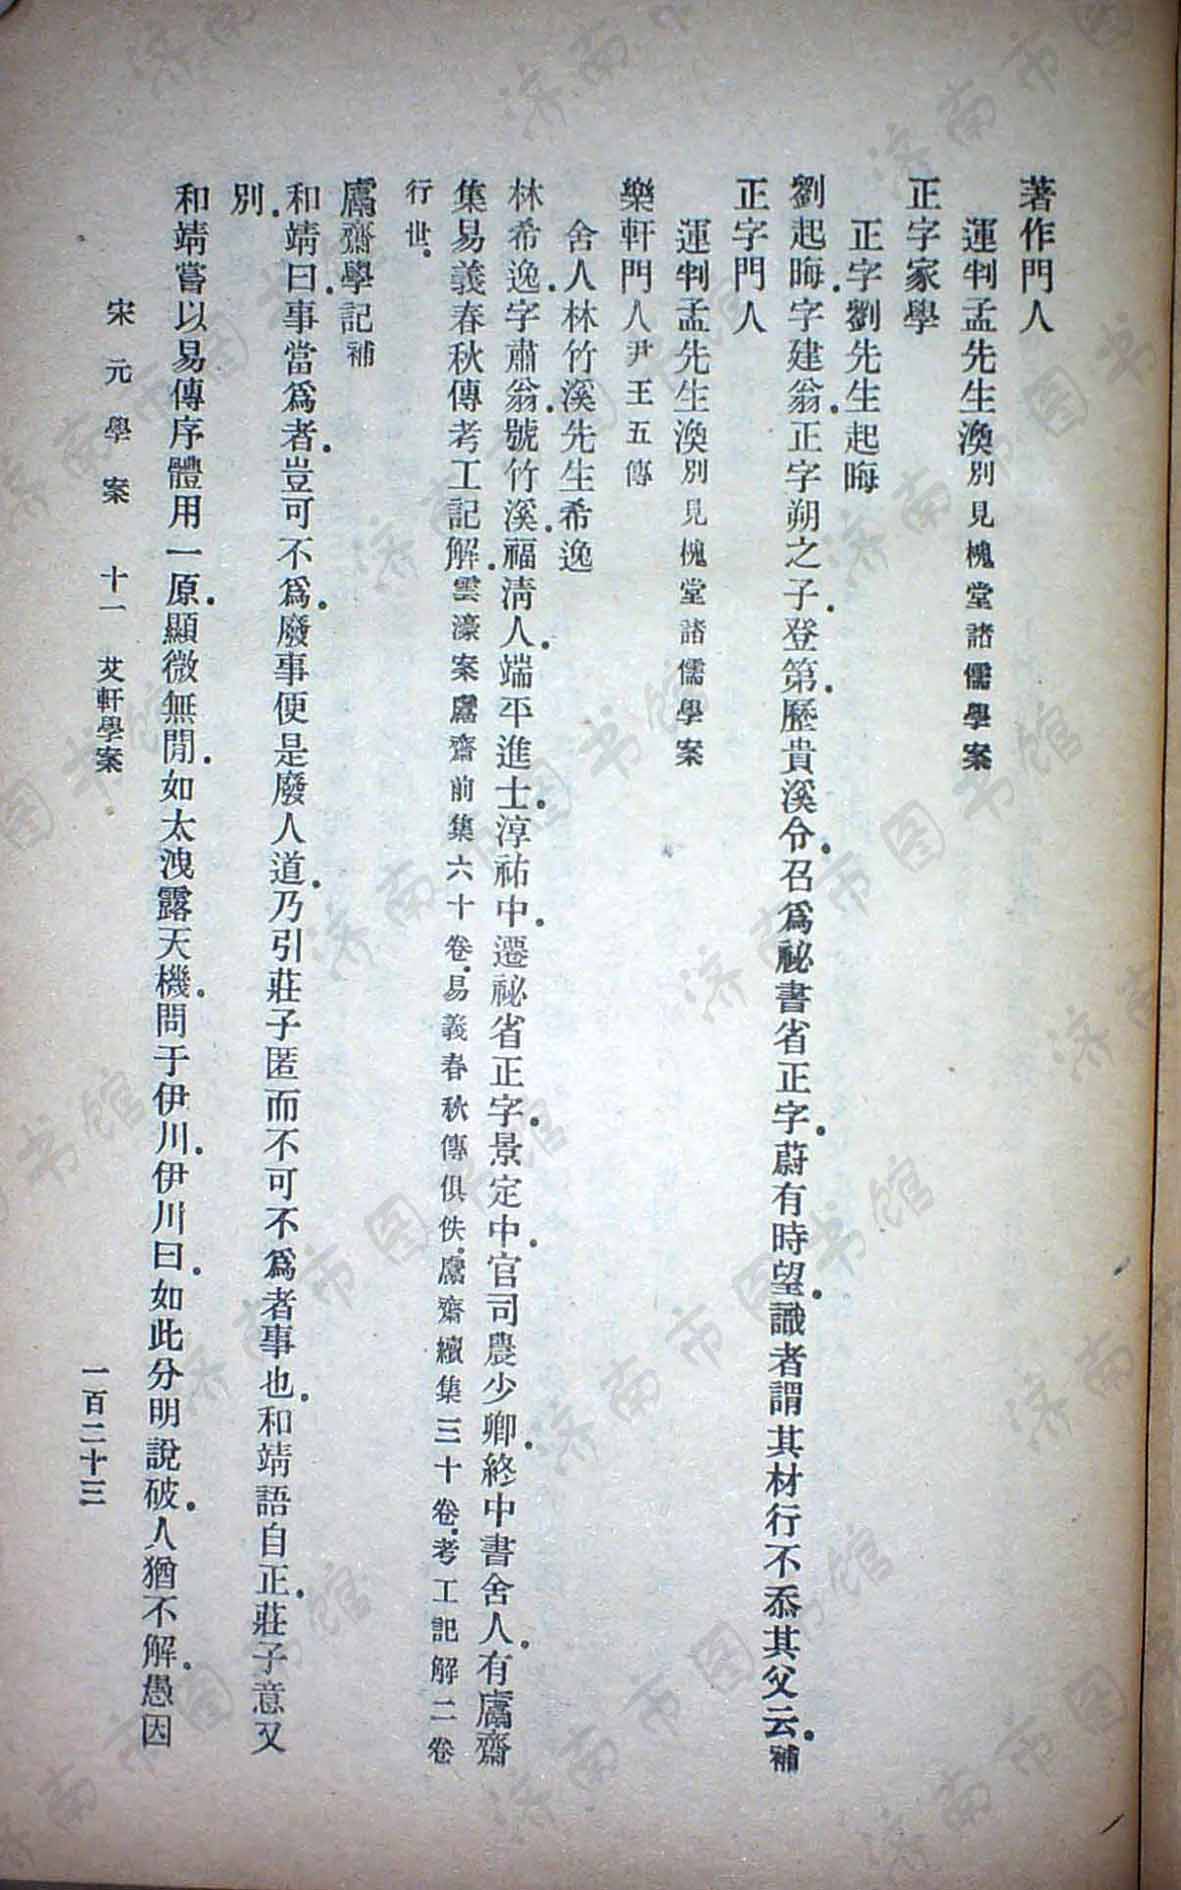 著作門人
運判孟先生渙別見槐堂諸儒學案
正字家學
正字劉先生起晦
劉起晦.字建翁.正字朔之子.登第.歷貴溪令.召爲祕書省正字.蔚有時望.識者謂其材行不忝其父云.補
正字門人
運判孟先生渙別見槐堂諸儒學案
樂軒門人尹王五傳
舍人林竹溪先生希逸
林希逸.字肅翁.號竹溪.福淸人.端平進士.淳祐中.遷祕省正字.景定中.官司農少卿.終中書舍人.有鬳齋
集易義春秋傳考工記解.雲濠案鬳齋前集六十卷.易義春秋傳俱佚.鬳齋續集三十卷.考工記解二卷
行世.
鬳齋學記補
和靖曰.事當爲者.豈可不爲.廢事便是廢人道.乃引莊子匿而不可不爲者事也.和靖語自正.莊子意又
別.
和靖嘗以易傳序體用一原.顯微無閒.如太洩露天機.問于伊川.伊川曰.如此分明說破.人猶不解.愚因
宋元學案 十一 艾軒學案 一百二十三
济南市图书馆